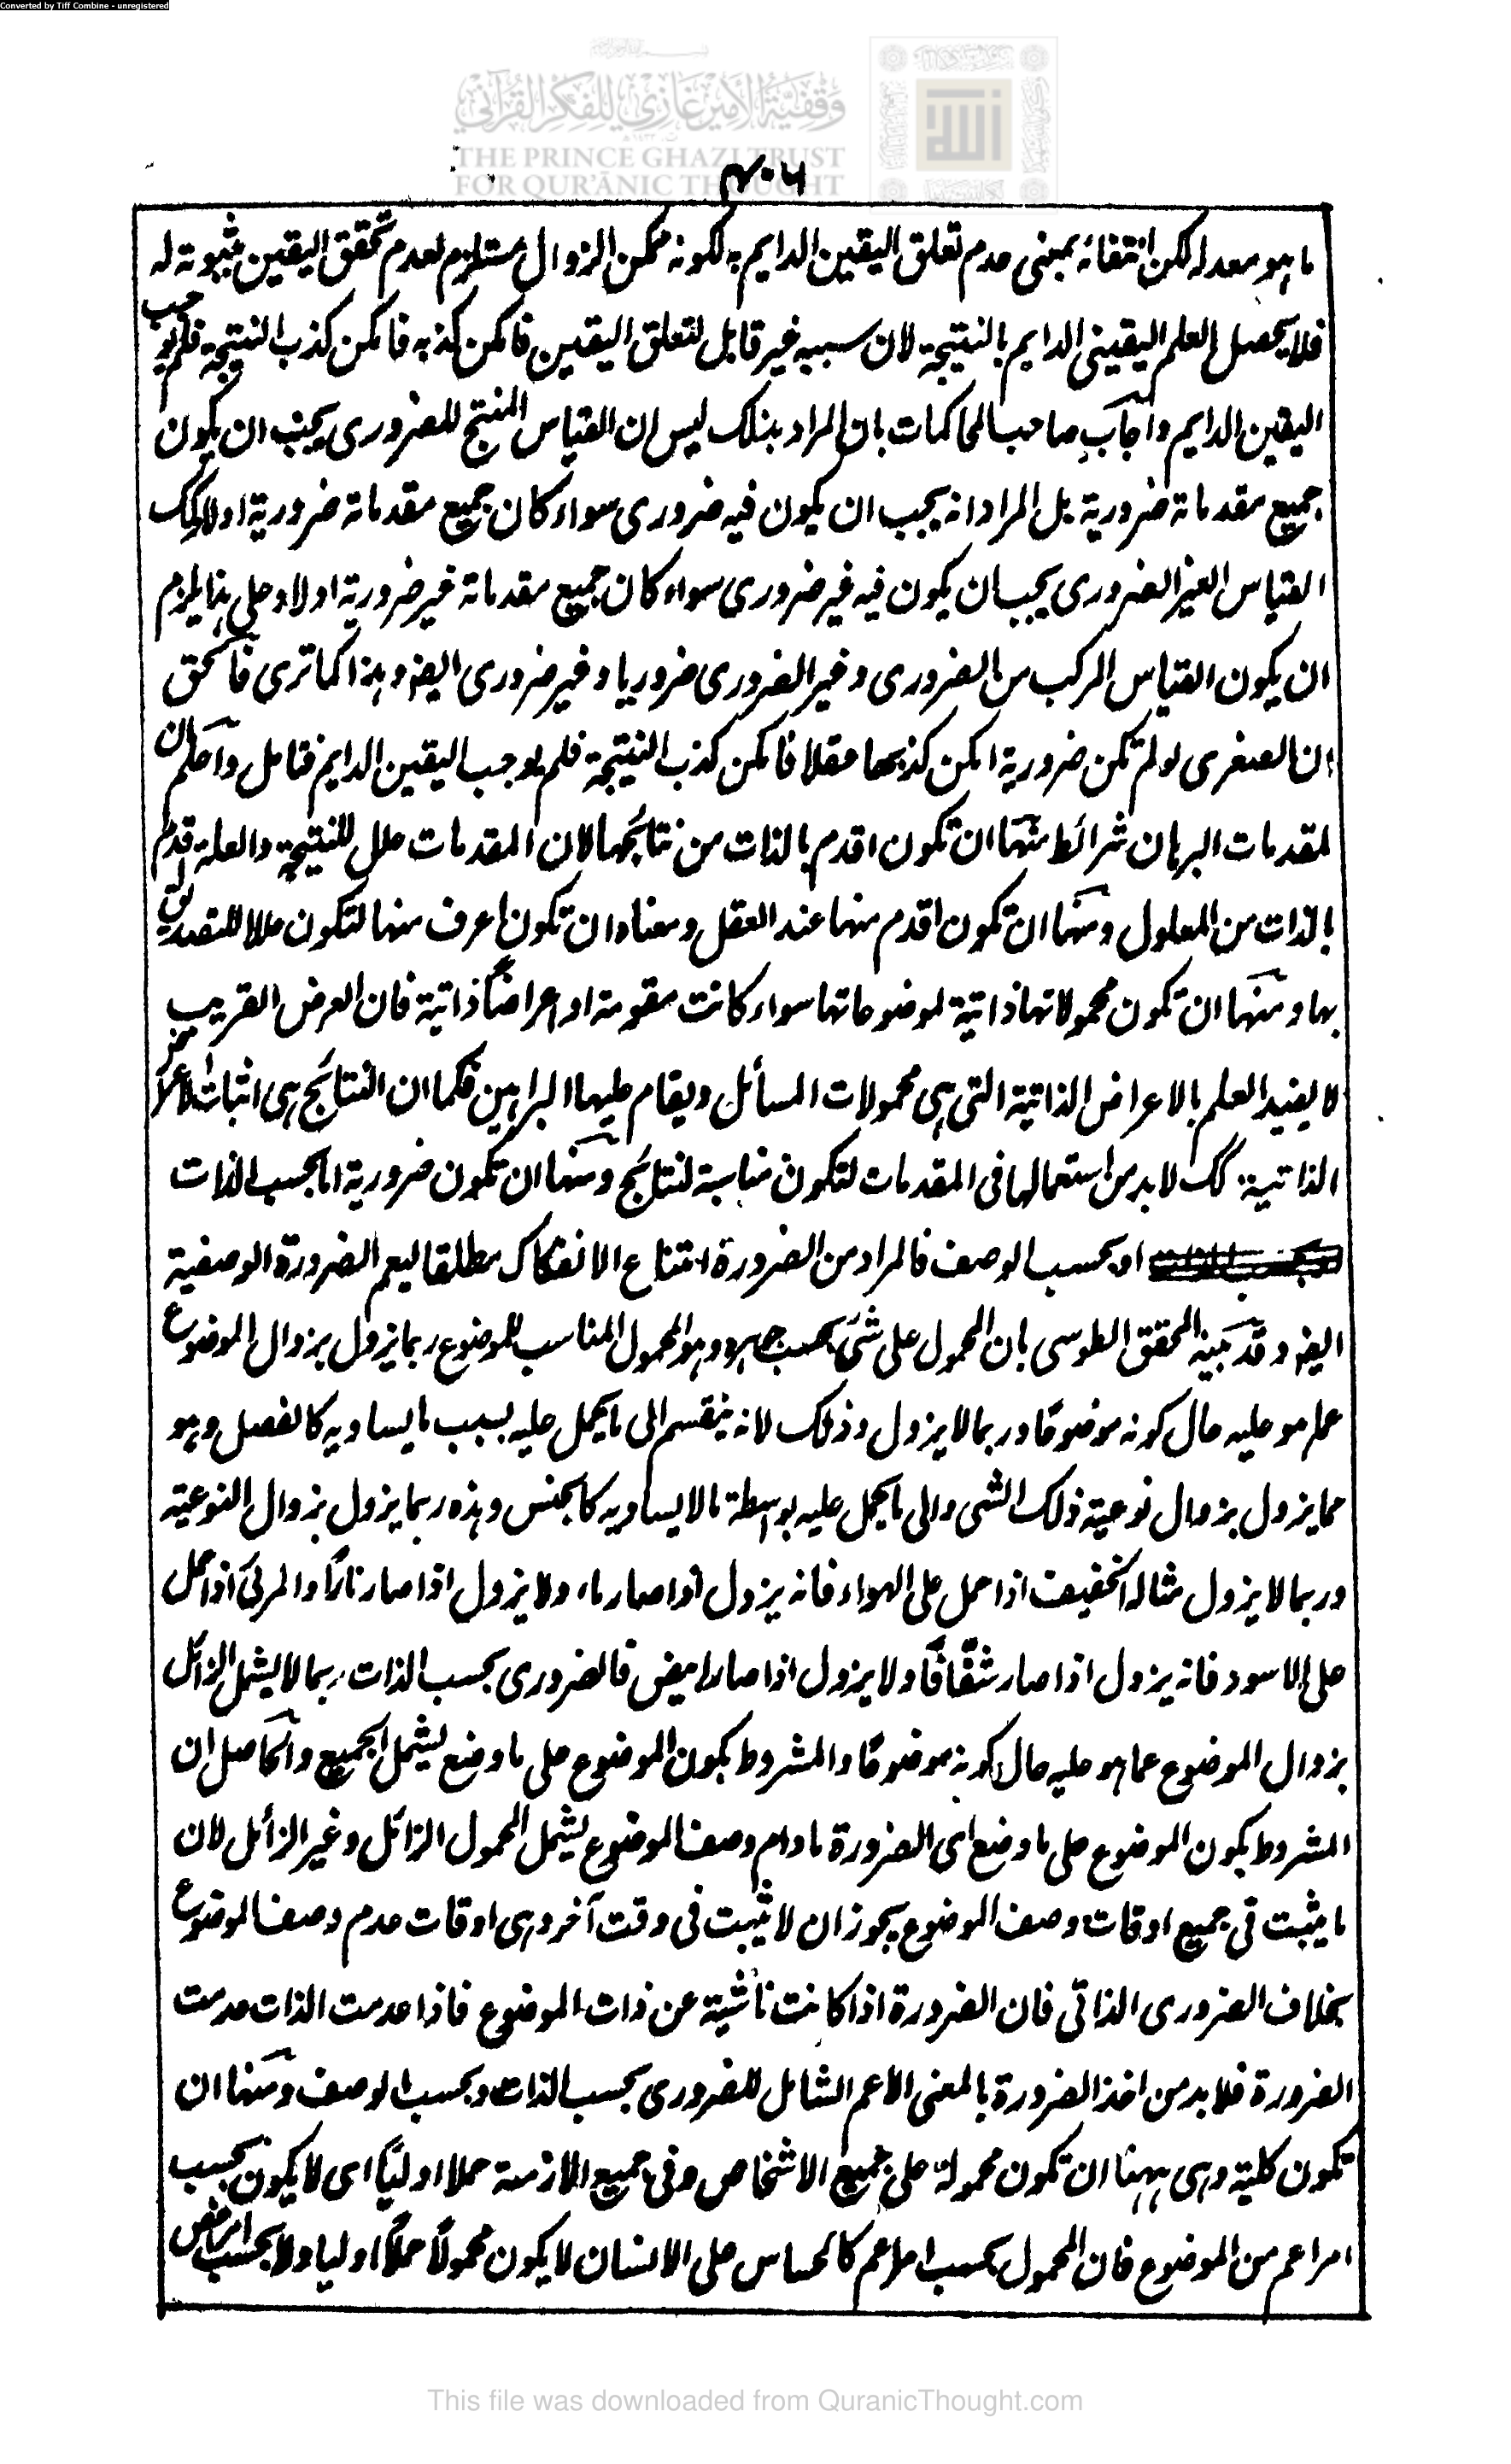 Converted by Tiff Combine - unregistered
وقفية الأمير غازي للفكر القرآني
THE PRINCE GHAZI TRUST
FOR QUR'ĀNIC THOUGHT
٤٠٦
ما هو معد له لكن انتفائه بمعنى عدم تعلق اليقين الدايم به لكونه ممكن الزوال مستلزم لعدم تحقق اليقين بثبوته له
فلا يحصل العلم اليقينى الدايم بالنتيجة لان سببه غير قابل لتعلق اليقين فامكن كذبه فامكن كذب النتيجة فلم يوجب
اليقين الدايم واجاب صاحب المحاكمات بان المراد بذلك ليس ان القياس المنتج للضرورى يجب ان يكون
جميع مقدماته ضرورية بل المراد انه يجب ان يكون فيه ضرورى سواء كان جميع مقدماته ضرورية او لا كك
القياس الغير الضرورى يجب ان يكون فيه غير ضرورى سواء كان جميع مقدماته غير ضرورية او لا وعلى هذا يلزم
ان يكون القياس المركب من الضرورى وغير الضرورى ضروريا وغير ضرورى ايضا وهذا كما ترى فالحق
ان الصغرى لو لم تكن ضرورية امكن كذبها عقلا فامكن كذب النتيجة فلم يوجب اليقين الدايم فتامل واعلم ان
لمقدمات البرهان شرائط منها ان تكون اقدم بالذات من نتايجها لان المقدمات علل للنتيجة والعلة اقدم
بالذات من المعلول ومنها ان تكون اقدم منها عند العقل ومعناه ان تكون اعرف منها لتكون عللا للتصديق
بها ومنها ان تكون محمولاتها ذاتية لموضوعاتها سواء كانت مقومة او اعراضًا ذاتية فان العرض القريب
لا يفيد العلم بالاعراض الذاتية التى هى محمولات المسائل ويقام عليها البراهين فكما ان النتائج هى اثبات الاعراض
الذاتية كك لا بد من استعمالها فى المقدمات لتكون مناسبة لنتايج ومنها ان تكون ضرورية اما بحسب الذات
او بحسب الوصف فالمراد من الضرورة امتناع الانفكاك مطلقا ليعم الضرورة الوصفية
ايضا وقد بينه المحقق الطوسى بان المحمول على شئ بحسب جوهره وهو المحمول المناسب للموضوع ربما يزول بزوال الموضوع
عما هو عليه حال كونه موضوعًا وربما لا يزول وذلك لانه ينقسم الى ما يحمل عليه بسبب ما يساويه كالفصل وهو
مما يزول بزوال نوعية ذلك الشى والى ما يحمل عليه بواسطة ما لا يساويه كالجنس وهذه ربما يزول بزوال النوعية
وربما لا يزول مثاله الخفيف اذا حمل على الهواء فانه يزول اذا صار ماء ولا يزول اذا صار نارًا والمرئى اذا حمل
على الاسود فانه يزول اذا صار شفّافًا ولا يزول اذا صار ابيض فالضرورى بحسب الذات ربما لا يشمل الزائل
بزوال الموضوع عما هو عليه حال كونه موضوعًا والمشروط بكون الموضوع على ما وضع يشمل الجميع والحاصل ان
المشروط بكون الموضوع على ما وضع اى الضرورة ما دام وصف الموضوع يشمل المحمول الزائل وغير الزائل لان
ما يثبت فى جميع اوقات وصف الموضوع يجوز ان لا يثبت فى وقت آخر وهى اوقات عدم وصف الموضوع
بخلاف الضرورى الذاتى فان الضرورة اذا كانت ناشية عن ذات الموضوع فاذا عدمت الذات عدمت
الضرورة فلا بد من اخذ الضرورة بالمعنى الاعم الشامل للضرورى بحسب الذات وبحسب الوصف ومنها ان
تكون كلية وهى ههنا ان تكون محمولة على جميع الاشخاص وفى جميع الازمنة حملا اوليًا اى لا يكون بحسب
امر اعم من الموضوع فان المحمول بحسب امر اعم كالحساس على الانسان لا يكون محمولًا حملًا اوليا ولا بحسب امر اخص
This file was downloaded from QuranicThought.com